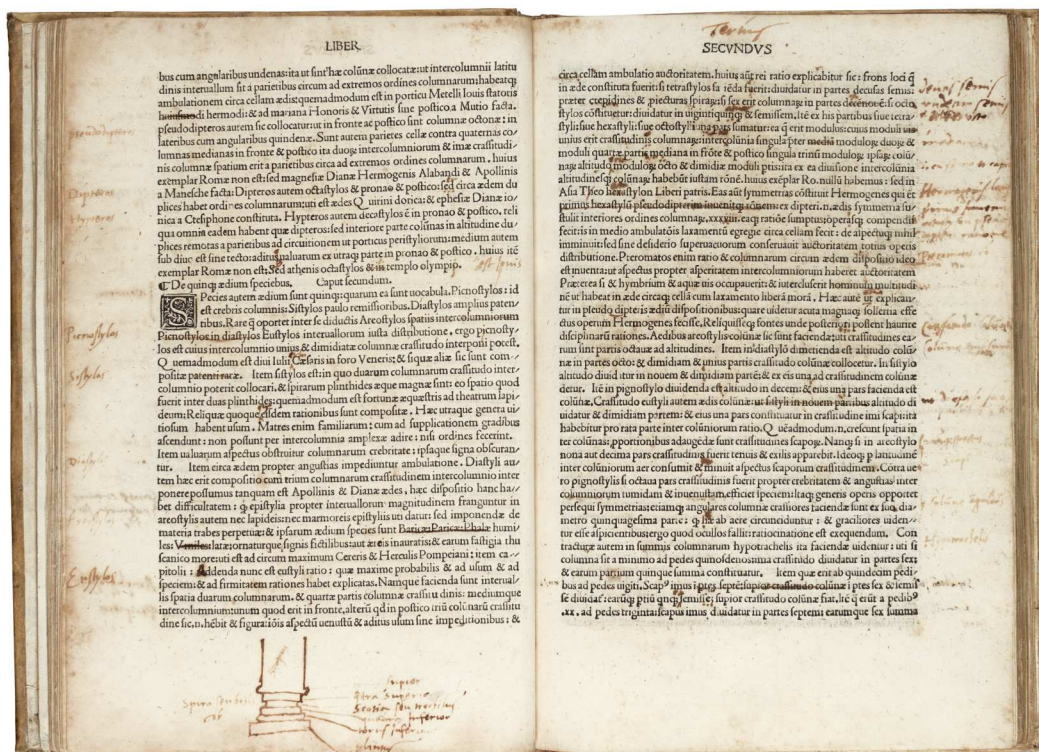 LIBER
bus cum angularibus undenas: ita ut sint hæ colũnæ collocatæ: ut intercolumnii latitu
dinis interuallum sit a parietibus circum ad extremos ordines columnarum: habeatq;
ambulationem circa cellam ædis: quemadmodum est in porticu Metelli Iouis statoris
hermodi: & ad mariana Honoris & Virtutis sine postico a Mutio facta.
pseudodipteros autem sic collocatur: ut in fronte ac postico sint columnæ octonæ: in
lateribus cum angularibus quindenæ. Sunt autem parietes cellæ contra quaternas co/
lumnas medianas in fronte & postico ita duorȝ intercolumniorum & imæ crassitudi/
nis columnæ spatium erit a parietibus circa ad extremos ordines columnarum. huius
exemplar Romæ non est: sed magnesiæ Dianæ Hermogenis Alabandi & Apollinis
a Mnesche facta: Dipteros autem octastylos & pronao & postico: sed circa ædem du
plices habet ordines columnarum: uti est ædes Quirini dorica: & ephesiæ Dianæ io/
nica a Ctesiphone constituta. Hypteros autem decastylos ē in pronao & postico, reli
qua omnia eadem habent quæ dipteros: sed interiore parte colũnas in altitudine du/
plices remotas a parietibus ad circuitionem ut porticus peristyliorum: medium autem
sub diuo est sine tecto: aditus ualuarum ex utraq; parte in pronao & postico. huius itē
exemplar Romæ non est: Sed athenis octastylos & in templo olympio.
¶De quinq; ædium speciebus. Caput secundum.
SPecies autem ædium sunt quinq: quarum ea sunt uocabula. Picnostylos: id
est crebris columnis: Sistylos paulo remissioribus. Diastylos amplius paten/
tibus. Rare ꝗ oportet inter se diductis Areostylos spatiis intercolumniorum
Picnostylos in diastylos Eustylos interuallorum iusta distributione, ergo picnosty/
los est cuius intercolumnio unius & dimidiatæ columnæ crassitudo interponi potest.
Quemadmodum est diui Iulii Cæsaris in foro Veneris: & siquæ aliæ sic sunt com/
positæ. Item sistylos est: in quo duarum columnarum crassitudo inter/
columnio poterit collocari. & spirarum plinthides æque magnæ sint: eo spatio quod
fuerit inter duas plinthides: quemadmodum est fortunæ æquæstris ad theatrum lapi/
deum: Reliquæ quoque eisdem rationibus sunt compositæ. Hæc utraque genera ui/
tiosum habent usum. Matres enim familiarum: cum ad supplicationem gradibus
ascendunt: non possunt per intercolumnia amplexæ adire: nisi ordines fecerint.
Item ualuarum aspectus obstruitur columnarum crebritate: ipsaque signa obscuran/
tur. Item circa ædem propter angustias impediuntur ambulatione. Diastyli au/
tem hæc erit compositio cum trium columnarum crassitudinem intercolumnio inter
ponere possumus tanquam est Apollinis & Dianæ ædes, hæc dispositio hanc ha/
bet difficultatem: ꝙ epistylia propter interuallorum magnitudinem franguntur in
areostylis autem nec lapideis: nec marmoreis epistyliis uti datur: sed imponendæ de
materia trabes perpetuæ: & ipsarum ædium species sunt humi/
les: latæ: ornaturque signis fictilibus: aut æreis inauratis: & earum fastigia thu
scanico more: uti est ad circum maximum Cereris & Herculis Pompeiani: item ca/
pitoli: Addenda nunc est eustyli ratio: quæ maxime probabilis & ad usum & ad
speciem: & ad firmitatem rationes habet explicatas. Namque facienda sunt interual/
lis spatia duarum columnarum. & quartæ partis columnæ crassitudinis: mediumque
intercolumnium: unum quod erit in fronte, alterũ qd in postico triũ colũnarũ crassitu
dine sic.n.hēbit & figuræ: iōis aspectũ uenustũ & aditus usum sine impeditionibus: &
Pseudodipteros
Dipteros
Hypteros
Picnostylos
Sistylos
Diastyli
Eustylos
inferior
SECVNDVS
circa cellam ambulatio auctoritatem. huius aũt rei ratio explicabitur sic: frons loci ꝗ
in æde constituta fuerit: si tetrastylos faciēda fuerit: diuidatur in partes decusas semis:
præter crepidines & piecturas spirarȝ: si sex erit columnarȝ in partes decenoue: si octo
stylos cōstituetur: diuidatur in uigintiquīq; & semissem. Itē ex his partibus siue tetra/
styli: siue hexastyli: siue octostyli una pars sumatur: ea ꝗ erit modulus: cuius moduli
unius erit crassitudinis columnarȝ: intercolũnia singula præter mediã modulorȝ duorȝ &
moduli quartæ partis mediana in frōte & postico singula trinũ modulorȝ ipsarȝ colũ/
narȝ altitudo modulorȝ octo & dimidiæ moduli partis ita ex ea diuisione intercolũnia
altitudinesq; colũnarȝ habebũt iustam rōnē. huius exēplar Ro. nullũ habemus: sed in
Asia Theo hexastylon Liberi patris. Eas aũt symmetrias cōstituit Hermogenes qui et
primus hexastylũ pseudodipterum inuenitq; rōnem: ex dipteri. n. ædis symmetria su/
stulit interiores ordines columnarȝ. xxxiiii. eaq; ratiōe sumptus: operasq; compendii
fecit: is in medio ambulatiōis laxamentũ egregie circa cellam fecit: de aspectuq; nihil
imminuit: sed sine desiderio superuacuorum conseruauit auctoritatem totius operis
distributione. Pteromatos enim ratio & columnarum circum ædem dispositio ideo
est inuenta: ut aspectus propter asperitatem intercolumniorum haberet auctoritatem
Præterea si & hymbrium & aquæ uis occupauerit: & intercluserit hominum multitudi
nē ut habeat in æde circaq; cellã cum laxamento libera morã. Hæc autē ut explican/
tur in pseudo dipteris ædiũ dispositionibus: quare uidetur acuta magnaq; solertia effe
ctus operum Hermogenes fecisse. Reliquisseq; fontes unde posteriori possent haurire
disciplinarũ rationes. Aedibus areostylis colũnæ sic sunt faciendæ: uti crassitudines ea
rum sint partis octauæ ad altitudines. Item in diastylō dimetienda est altitudo colũ/
næ in partes octo: & dimidiã & unius partis crassitudo colũnæ collocetur. In sistylo
altitudo diuidatur in nouem & dimidiam partē: & ex eis una ad crassitudinem colũnæ
detur. Itē in pignostylo diuidenda est altitudo in decem: & eius una pars facienda est
colũnæ. Crassitudo eustyli autem ædis colũnæ: ut sistyli in nouem partibus altitudo di
uidatur & dimidiam partem: & eius una pars constituatur in crassitudine imi scapi: ita
habebitur pro rata parte inter colũniorum ratio. Quēadmodum. n. crescunt spatia in
ter colũnas: pportionibus adaugēdæ sunt crassitudines scaporȝ. Nanq; si in areostylo
nona aut decima pars crassitudinis fuerit tenuis & exilis apparebit. Ideoq; p latitudinē
inter colũniorum aer consumit & minuit aspectus scaporum crassitudinem. Cōtra ue/
ro pignostylis si octaua pars crassitudinis fuerit propter crebritatem & angustias inter
columniorum tumidam & inuenustam. efficiet speciem: Itaq; generis operis oportet
persequi symmetrias: etiamq; angulares columnæ crassiores faciendæ sunt ex suo dia
metro quinquagesima parte: ꝙ hæ ab aere circunciduntur: & graciliores uiden/
tur esse aspicientibus: ergo quod ocullos fallit: ratiocinatione est exequendum. Con
tracturæ autem in summis columnarum hypotrachelis ita faciendæ uidentur: uti si
columna sit a minimo ad pedes quinosdenos: ima crassitudo diuidatur in partes sex:
& earum partium quinque summa constituatur. Item quæ erit ab quindecim pedi/
bus ad pedes uigiti. Scapꝰ imus i ptes septē: supior crassitudo colũnæ i ptes sex & semis
se diuidat: earũq; ptiũ qnq; semisse: supior crassitudo colũnæ fiat. Itē ꝗ erũt a pedibꝰ
.xx. ad pedes triginta: scapus imus diuidatur in partes septem: earumque sex summa